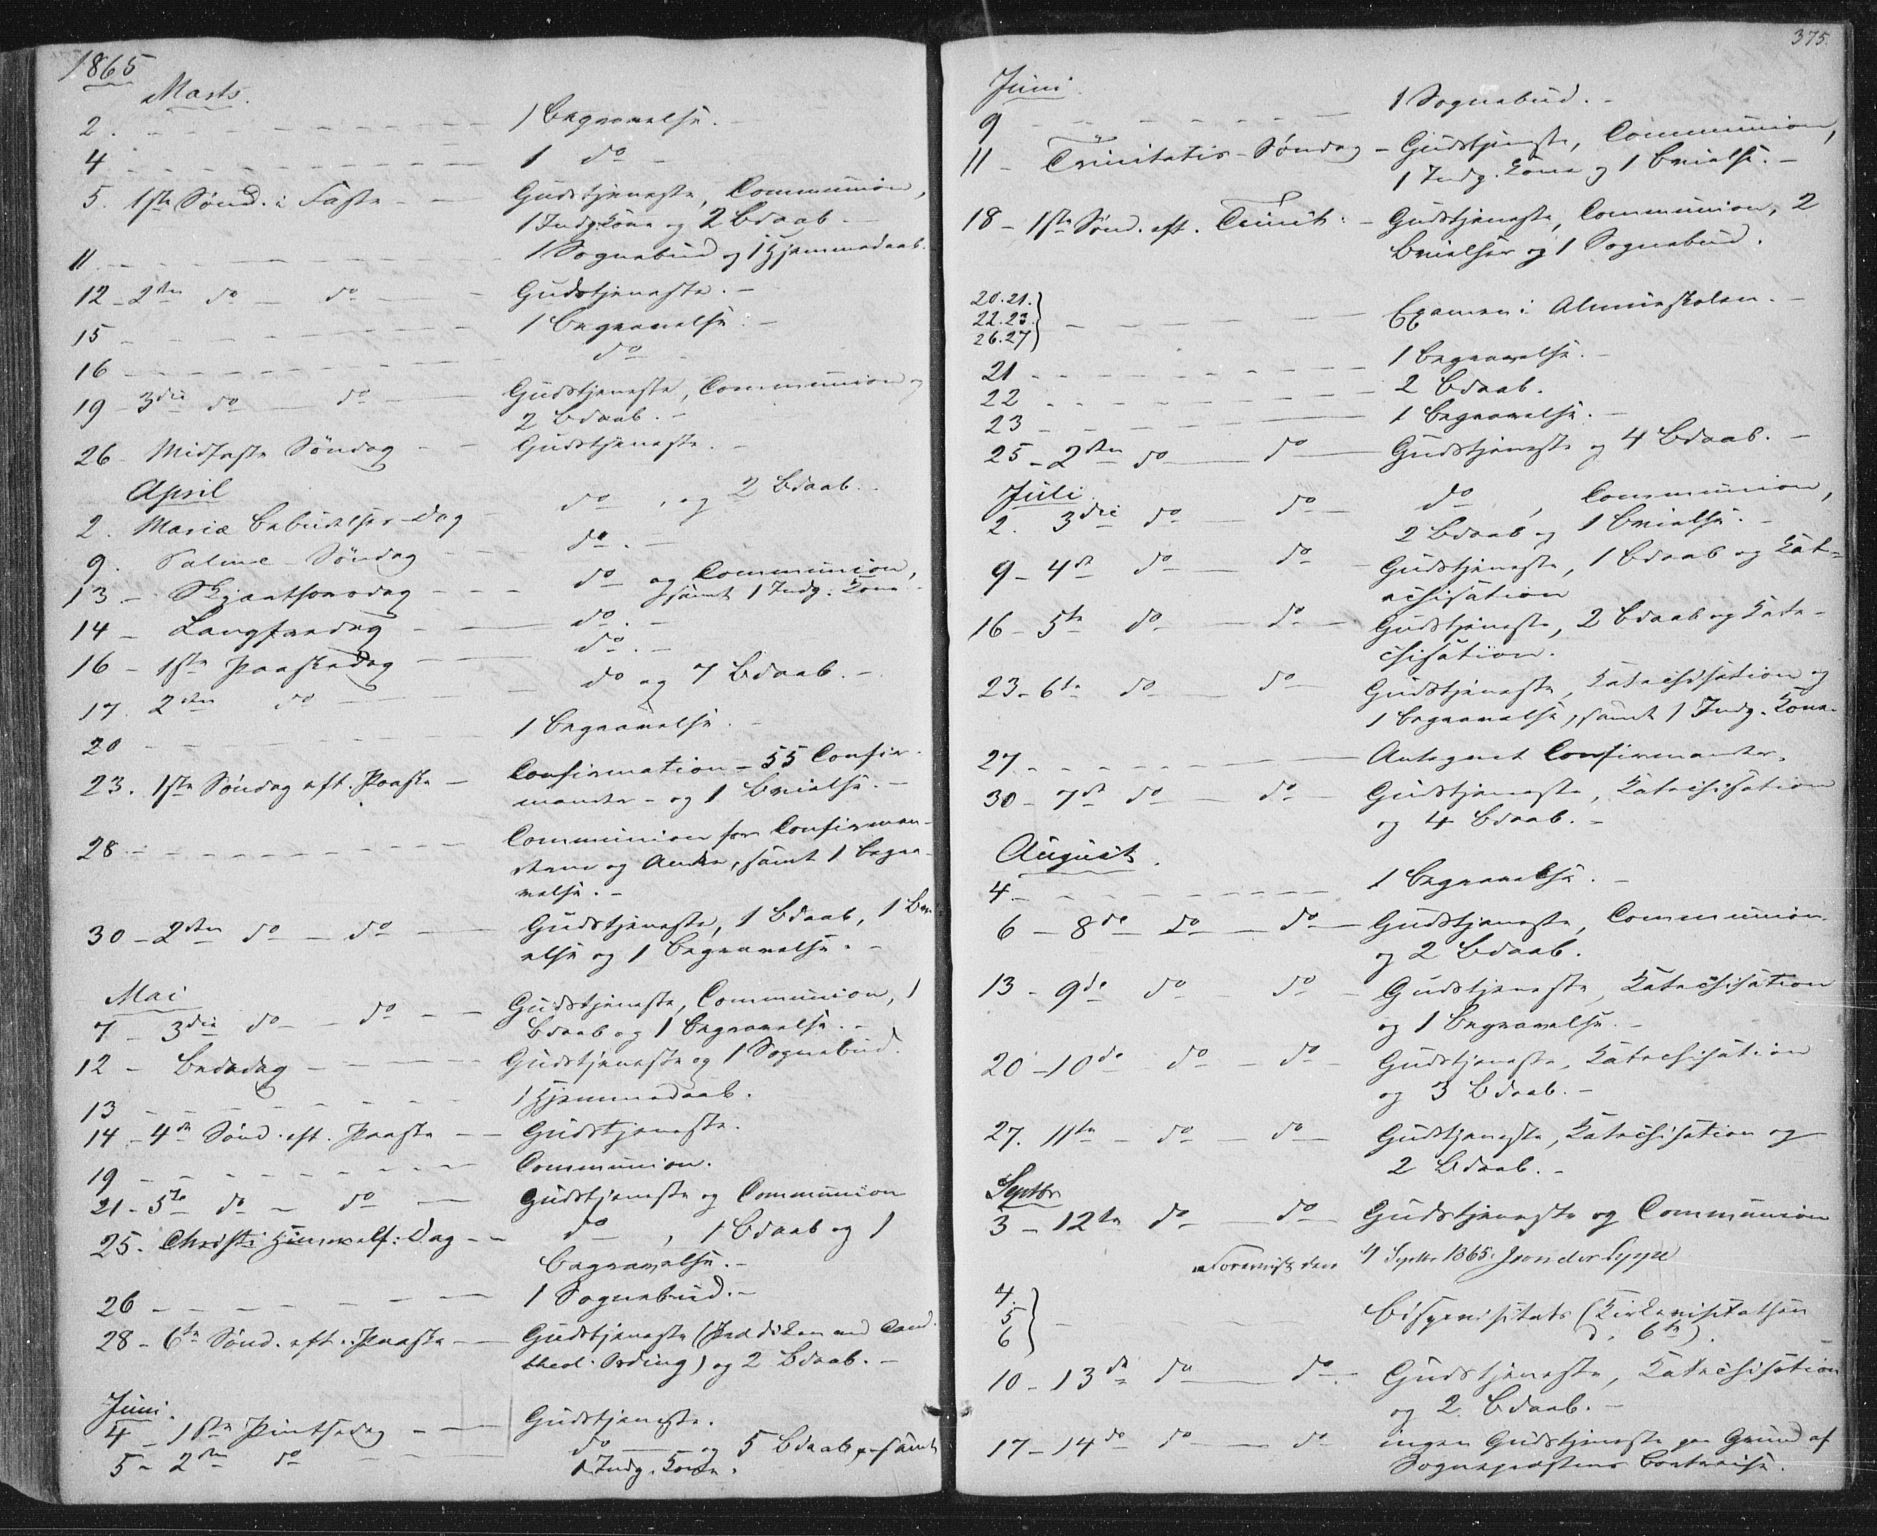 1865
Marts.
2. 1 Begravelse. -
4 1 do -
5. 1ste Sønd. i Faste - Gudstjeneste, Communion,
1 Indg. Kone og 2 Bdaab. -
11 1 Sognebud og 1 Hjemmedaab.
12 - 2den do - do - Gudstjeneste. -
15 1 Begravelse. -
16 do
19 - 3die do - do - Gudstjeneste, Communion og
2 Bdaab. -
26 - Midfaste Søndag - Gudstjeneste. -
April
2. Mariæ Bebudelses-Dag - do, og 2 Bdaab. -
9. Palme-Søndag - do. -
13. - Skjærthorsdag - do og Communion,
samt 1 Indg. Kone
14 - Langfredag - do. -
16 - 1ste Paaskedag - do. -
17. 2den do - do og 7 Bdaab. -
20 1 Begravelse. -
23. 1ste Søndag eft. Paaske - Confirmation - 55 Confir-
mander - og 1 Vielse. -
28 - Communion for Confirman-
derne og Andre, samt 1 Begra-
velse. -
30 - 2den do - do - Gudstjeneste, 1 Bdaab, 1 Bvi-
else og 1 Begravelse. -
Mai
7 - 3die do - do - Gudstjeneste, Communion, 1
Bdaab og 1 Begravelse. -
12 - Bededag - Gudstjeneste og 1 Sognebud.
13 1 Hjemmedaab.
14 - 4de Sønd. eft. Paaske - Gudstjeneste.
19 Communion.
21 - 5te do - do - Gudstjeneste og Communion
25. Christi Himmelf: Dag - do, 1 Bdaab og 1
Begravelse. -
26 1 Sognebud. -
28 - 6te Sønd. eft. Paaske - Gudstjeneste (Prædiken ved Cand.
theol. Ording) og 2 Bdaab. -
Juni.
4 - 1ste Pintsedag - Gudstjeneste.
5 - 2den do - do - og 5 Bdaab, samt
1 Indg. Kone.
375.
Juni.
9 1 Sognebud. -
11 - Trinitatis-Søndag - Gudstjeneste, Communion,
1 Indg. Kone og 1 Bvielse. -
18 - 1ste Sønd. eft. Trinit: - Gudstjeneste, Communion, 2
Bvielser og 1 Sognebud.
20. 21.
22. 23. Examen i Almueskolen. -
26. 27
21 1 Begravelse. -
22 2 Bdaab.
23 1 Begravelse. -
25 - 2den do - do - Gudstjeneste og 4 Bdaab. -
Juli.
2. 3die do - do - do, Communion,
2 Bdaab og 1 Bvielse. -
9 - 4de do - do - Gudstjeneste, 1 Bdaab og Kat-
echisation
16 - 5te do - do - Gudstjeneste, 2 Bdaab og Kate-
chisation.
23 - 6te do - do - Gudstjeneste, Katechisation og
1 Begravelse, samt 1 Indg. Kone.
27. Antegnet Confirmander.
30 - 7de do - do - Gudstjeneste, Katechisation
og 4 Bdaab. -
August.
4 1 Begravelse. -
6 - 8de do - do - Gudstjeneste, Communion
og 2 Bdaab.
13 - 9de do do - Gudstjeneste, Katechisation
og 1 Begravelse. -
20 - 10de do - do - Gudstjeneste, Katechisation
og 3 Bdaab. -
27. 11te - do - do - Gudstjeneste, Katechisation og
2 Bdaab. -
Septbr
3 - 12te do - do - Gudstjeneste og Communion
Forevist den 4 Septbr 1865.
4.
5 Bispevisitats (Kirkevisitatsen
6 d. 6te).
10 - 13de do - do - Gudstjeneste, Katechisation
og 2 Bdaab. -
17 - 14de do - do - ingen Gudstjeneste paa Grund af
Sognepræstens Bortreise.